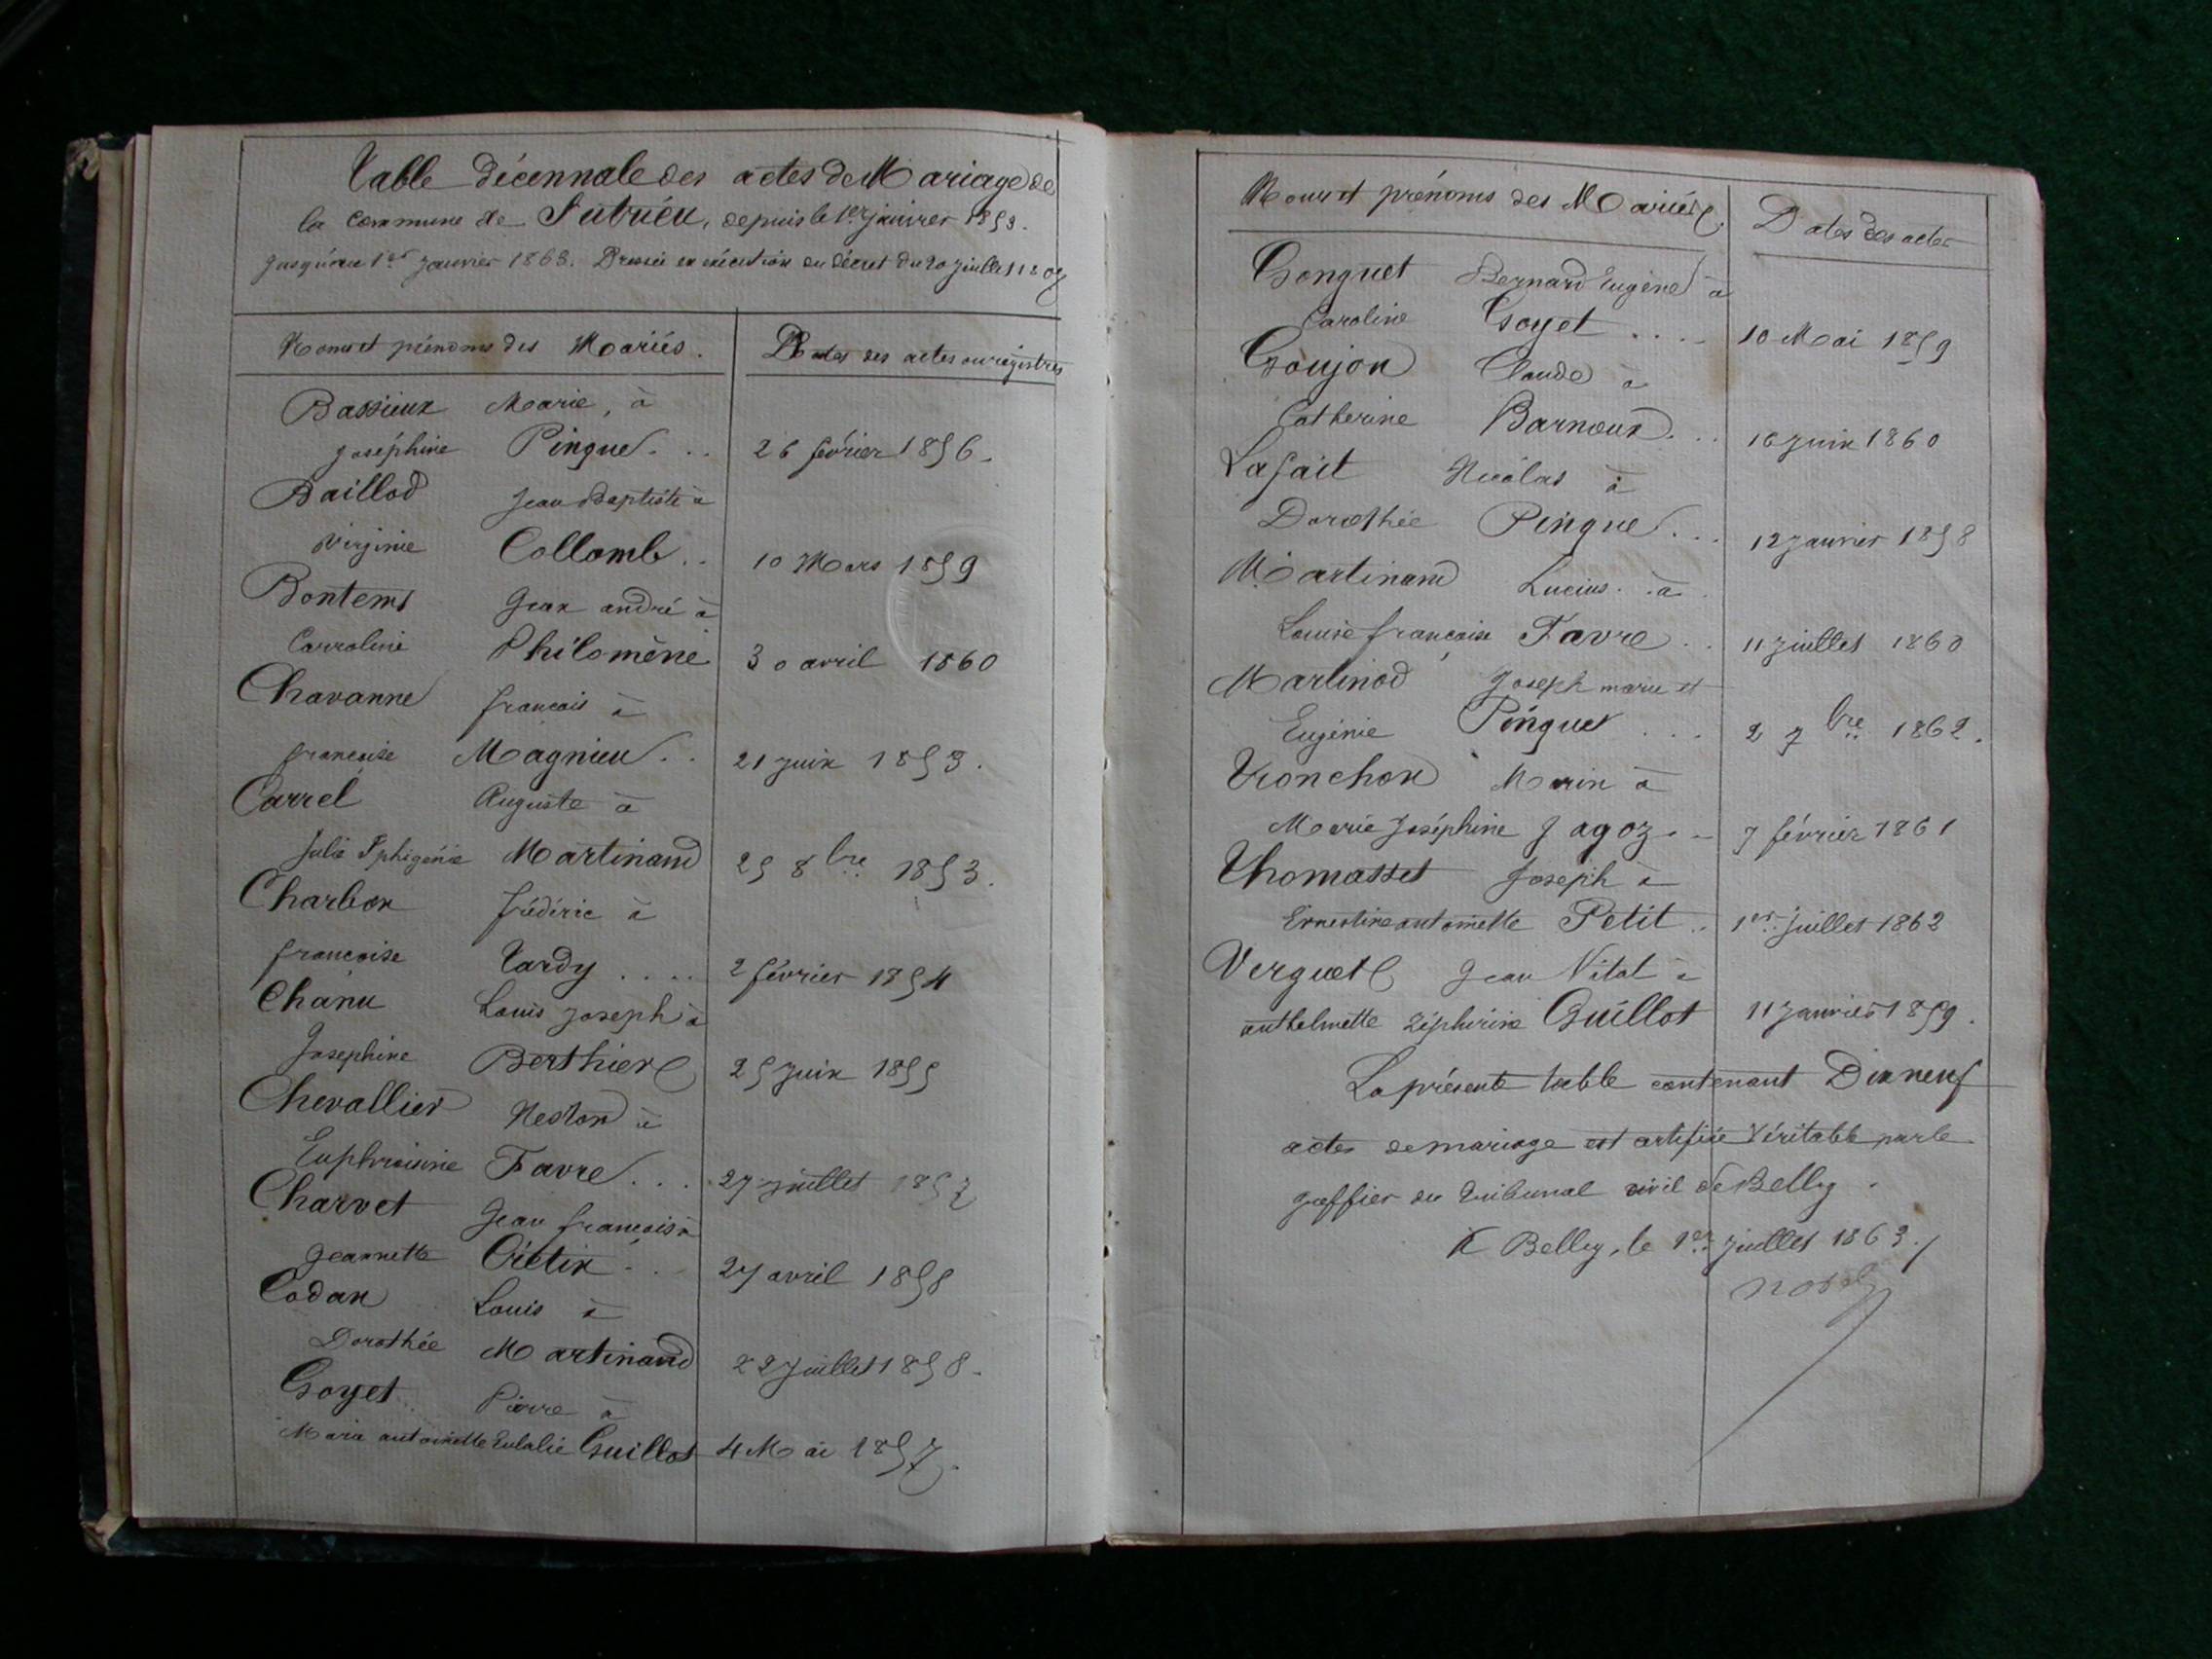 Table décennale des actes de Mariage de
la commune de Sutrieu, depuis le 1er janvier 1853.
jusqu'au 1er janvier 1863. Dressée en exécution du décret du 20 juillet 1807
Noms et prénoms des Mariés. Dates des actes ou registres
Bassieux Marie, à
Joséphine Pingue. . . 26 février 1856.
Baillod Jean Baptiste à
Virginie Collomb . . 10 Mars 1859
Bontems Jean andré à
Carroline Philomène 30 avril 1860
Chavanne françois à
françoise Magnieu . . 21 juin 1853.
Carrel Auguste à
Julie Iphigénie Martinand 25 8bre 1853.
Charbon frédéric à
françoise Tardy . . . . 2 février 1854
Chanu Louis Joseph à
Josephine Berthier 25 juin 1855
Chevallier Nestor à
Euphroisine Favre . . . 27 juillet 1857
Charvet Jean françois à
Jeannette Crétin . . 27 avril 1858
Codan Louis à
Dorothée Martinand 22 juillet 1858.
Goyet Pierre à
Marie antoinette Eulalie Guillot 4 Mai 1857.
Noms et prénoms des Mariés. Dates des actes
Gonguet Bernard Eugène à
Caroline Goyet . . . . 10 Mai 1859
Goujon Claude à
Catherine Barnoux . . . 16 juin 1860
Lafait Nicolas à
Dorothée Pingue . . . 12 janvier 1858
Martinand Lucius . à
Louise françoise Favre . . 11 juillet 1860
Martinod Joseph marie et
Eugénie Pinguet . . . 2 7bre 1862.
Tronchon Marin à
Marie Joséphine Jagoz . . 7 février 1861
Thomasset Joseph à
Ernestine antoinette Petit . . 1er juillet 1862
Verguet Jean Vital à
anthelmette Zéphirine Guillot 11 janvier 1859.
La présente table contenant Dix neuf
actes de mariage est certifiée Véritable par le
greffier du tribunal civil de Belley.
A Belley, le 1er juillet 1863.